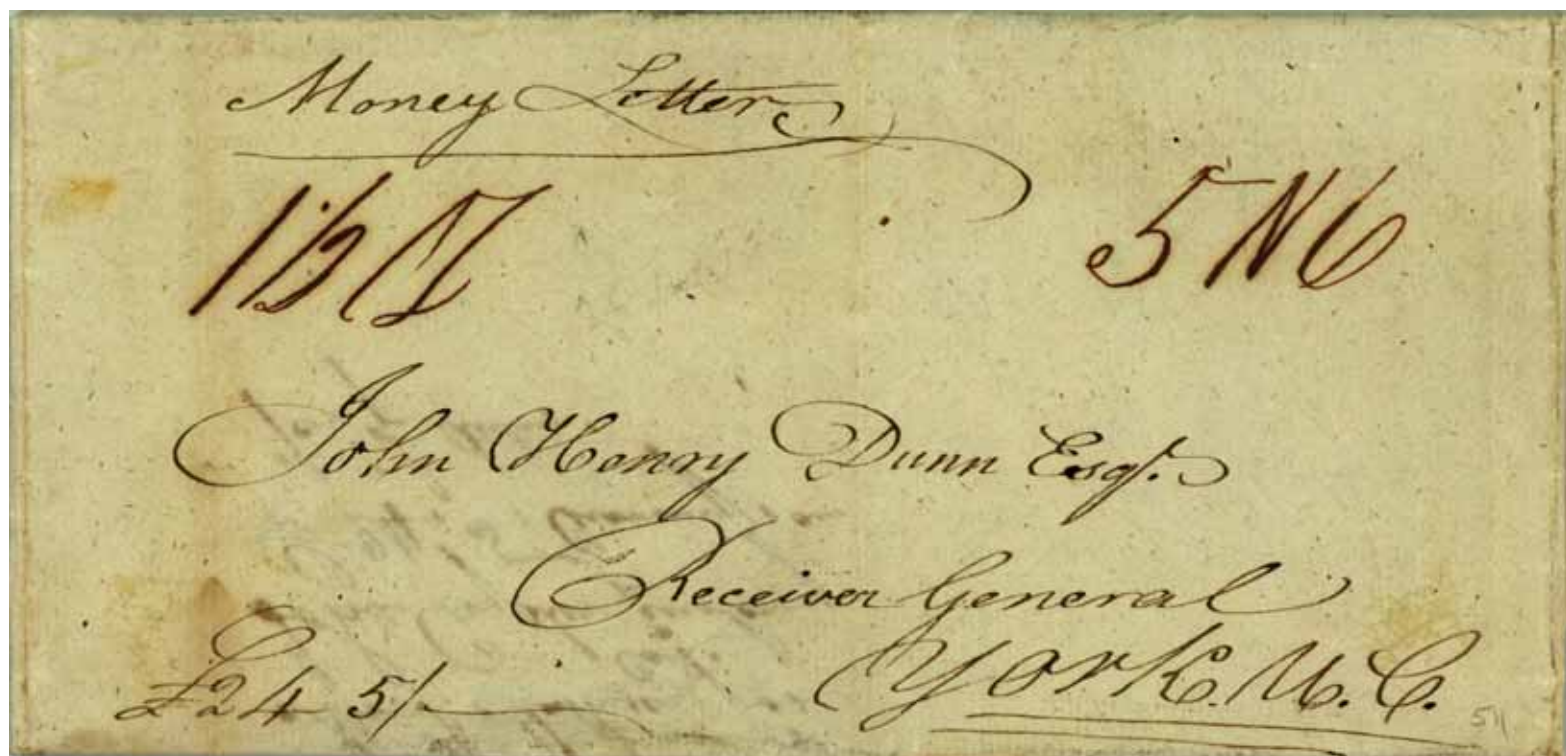 Money Letter
5 N6
John Henry Dunn Esqr.
Receiver General
York. U. C.
£24 5/-